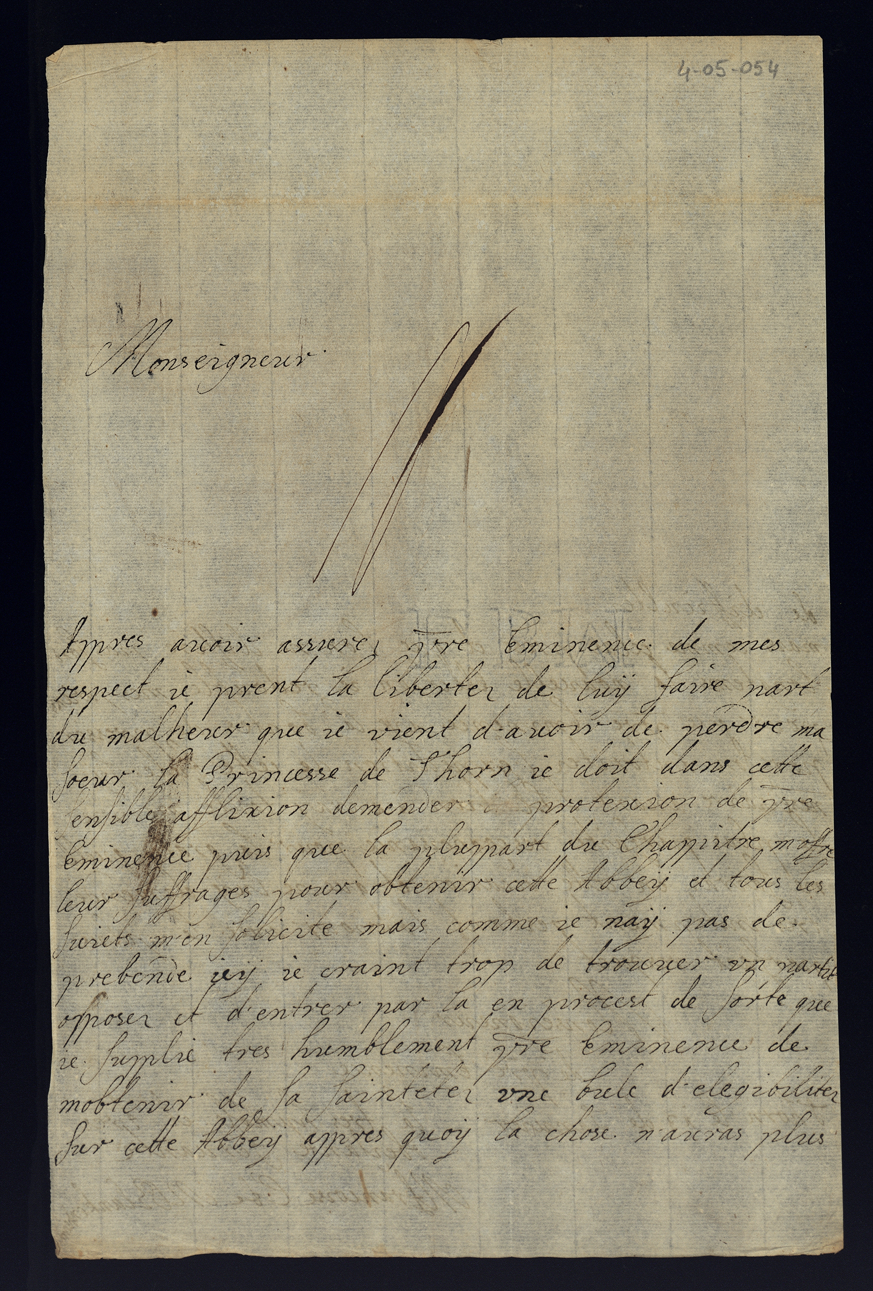 4-05-054
Monseigneur
Appres auoir assurez vre Eminence de mes
respect ie prent la libertez de luÿ faire part
du malheur que ie vient d'auoir de perdre ma
soeur la Princesse de Thorn ie doit dans cette
sensible afflixion demender protexion de vre
Eminence puis que la pluspart du Chappitre moffre
leur suffrages pour obtenir cette Abbeÿ et tous les
suiets m'en solicite mais comme ie naÿ pas de
prebende icÿ ie craint trop de trouuer vn partit
opposez et d'entrer par la en procest de sorte que
ie supplie tres humblement vre Eminence de
mobtenir de sa saintétez vne bule d'elegibilitez
sur cette Abbeÿ appres quoÿ la chose n'auras plus